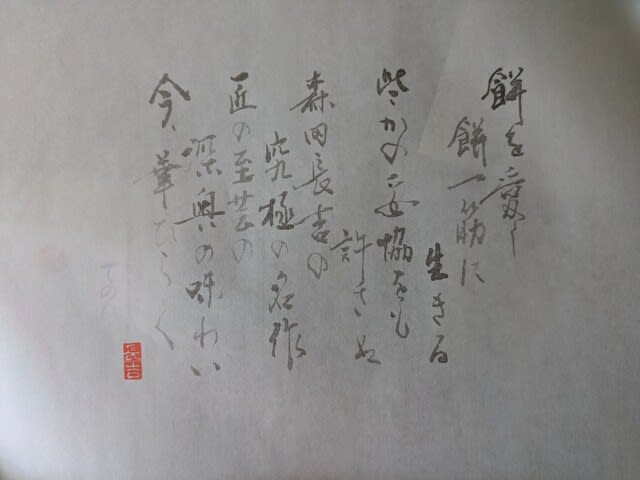 餅を愛し
餅一筋に
生きる
些かの妥協をも
許さぬ
森田長吉の
究極の名作
匠の至芸の
深奥の味わい
今、華ひらく
長吉